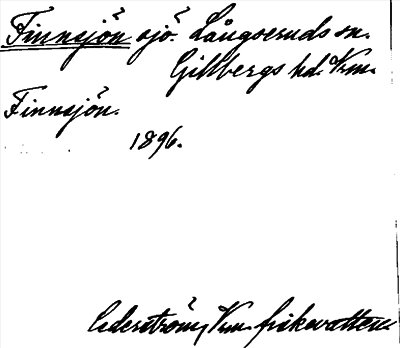 Finnsjön sjö. Långseruds sn.
Gillbergs hd. Vrm.
Finnsjön.
1896.
Cederström, Vrm. fiskevatten